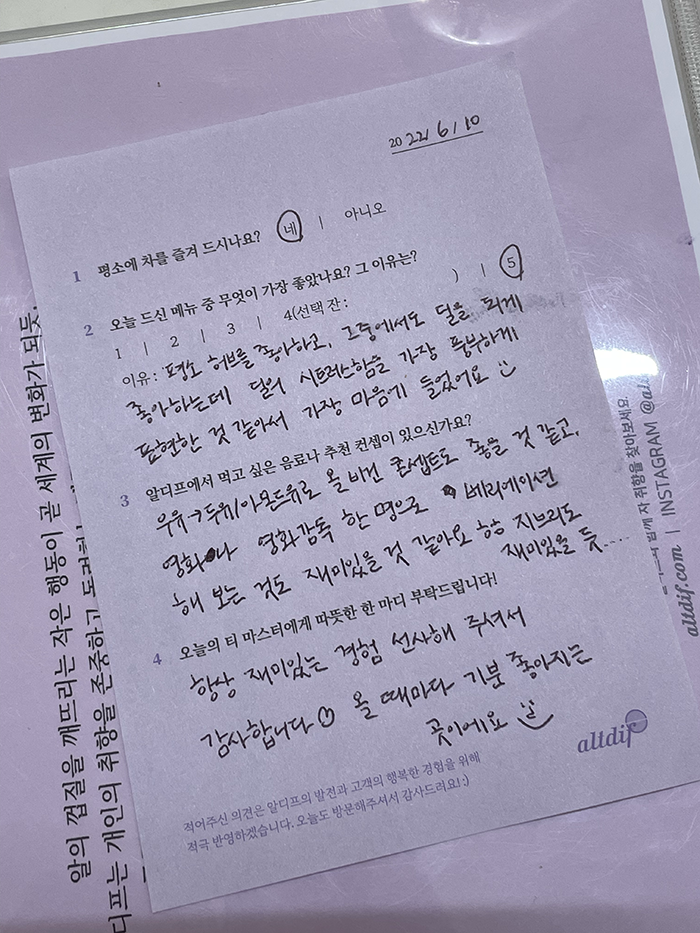 20 22 / 6 / 10
1 평소에 차를 즐겨 드시나요? 네 | 아니오
2 오늘 드신 메뉴 중 무엇이 가장 좋았나요? 그 이유는?
1 | 2 | 3 | 4(선택 잔: ) | 5
이유: 평소 허브를 좋아하고, 그중에서도 딜을 되게
좋아하는데 딜의 시트러스함을 가장 풍부하게
표현한 것 같아서 가장 마음에 들었어요
3 알디프에서 먹고 싶은 음료나 추천 컨셉이 있으신가요?
우유→두유/아몬드유로 올 비건 콘셉트도 좋을 것 같고,
영화나 영화감독 한 명으로 베리에이션
해 보는 것도 재미있을 것 같아요 ㅎㅎ 지브리도
재미있을 듯....
4 오늘의 티 마스터에게 따뜻한 한 마디 부탁드립니다!
항상 재미있는 경험 선사해 주셔서
감사합니다 올 때마다 기분 좋아지는
곳이에요
altdif
적어주신 의견은 알디프의 발전과 고객의 행복한 경험을 위해
적극 반영하겠습니다. 오늘도 방문해주셔서 감사드려요! :)
알의 껍질을 깨뜨리는 작은 행동이 곧 세계의 변화가 되듯,
디프는 개인의 취향을 존중하고
함께 차 취향을 찾아보세요.
altdif.com | INSTAGRAM